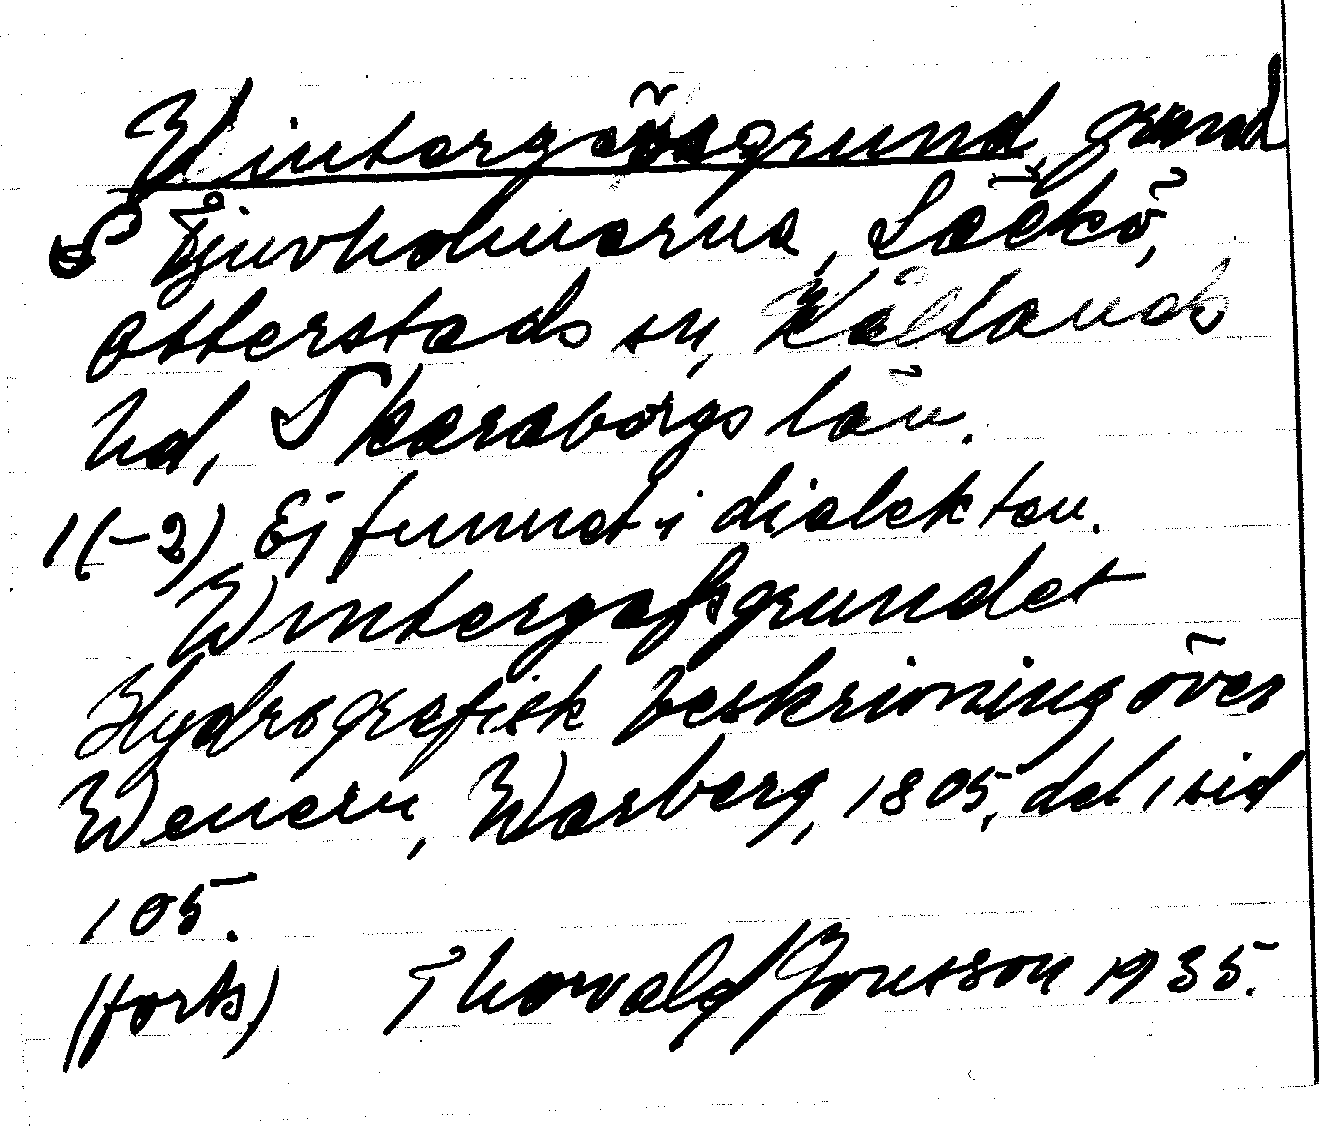 Wintergåsgrund, grund
S Tjuvholmarna, Läckö,
Otterstads sn, Kållands
hd, Skaraborgs län.
1(-2) Ej funnet i dialekten.
Wintergasgrundet
Hydrografisk beskrivning över
Wenern, Warberg, 1805, del 1 sid
105.
(forts) Thorvald Jonsson 1935.